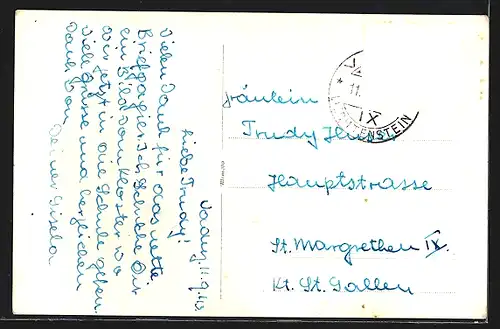 Vaduz, 11.9.43
Liebe Trudy!
Vielen Dank für das nette
Briefpapier. Ich schicke Dir
ein Bild vom Kloster wo
wir jetzt in die Schule gehen.
Viele Grüsse und herzlichen
Dank von
Deiner Gisela
Fräulein
Trudy
Hauptstrasse
St. Margrethen IX.
Kt. St. Gallen
11.
IX